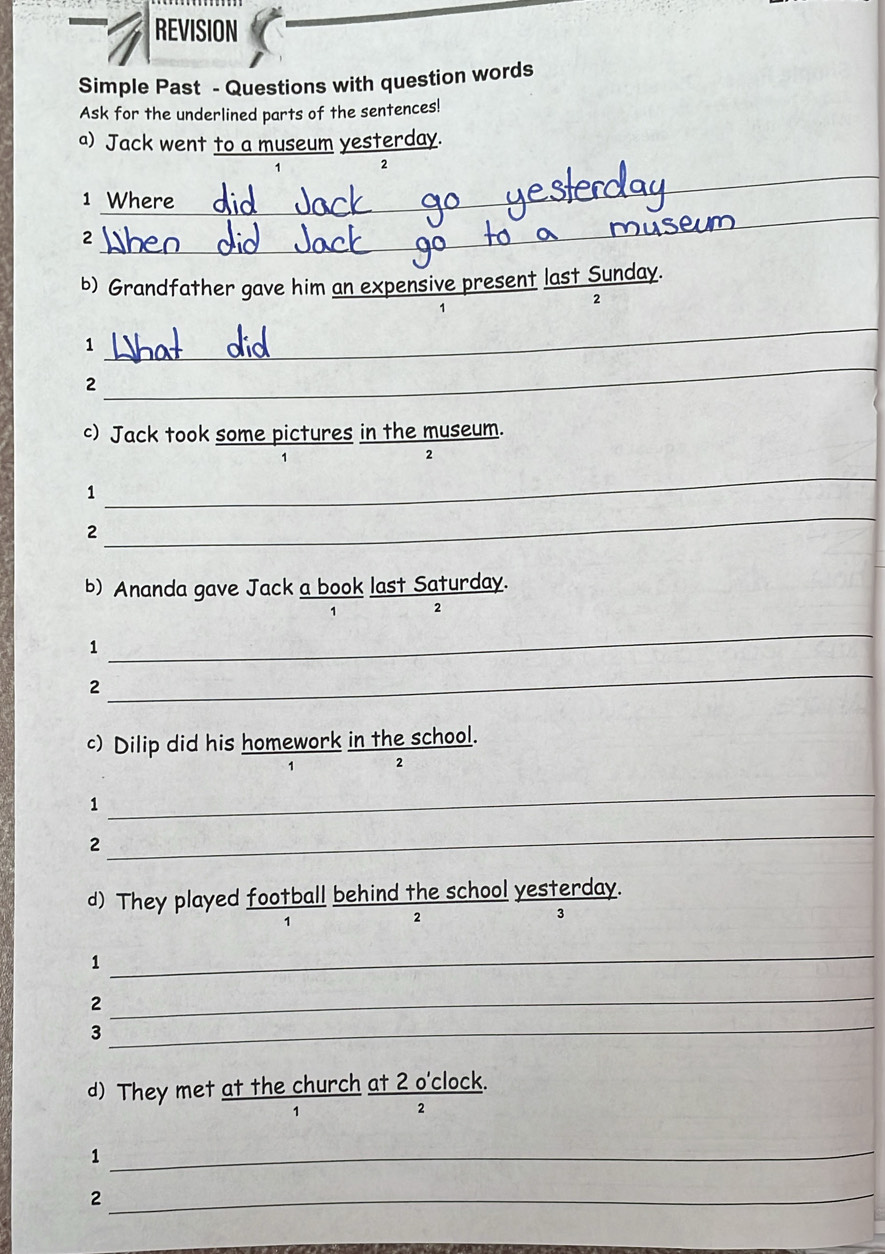 REVISION
Simple Past - Questions with question words
Ask for the underlined parts of the sentences!
a) Jack went to a museum yesterday.
1 2
1 Where did Jack go yesterday
2 When did Jack go to a museum
b) Grandfather gave him an expensive present last Sunday.
1 2
1 What did
2
c) Jack took some pictures in the museum.
1 2
1
2
b) Ananda gave Jack a book last Saturday.
1 2
1
2
c) Dilip did his homework in the school.
1 2
1
2
d) They played football behind the school yesterday.
1 2 3
1
2
3
d) They met at the church at 2 o'clock.
1 2
1
2